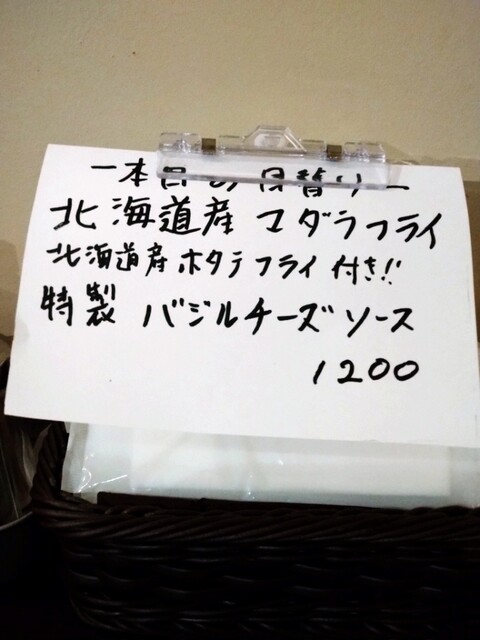 ー本日の日替りー
北海道産 マダラフライ
北海道産ホタテフライ付き!!
特製 バジルチーズソース
1200